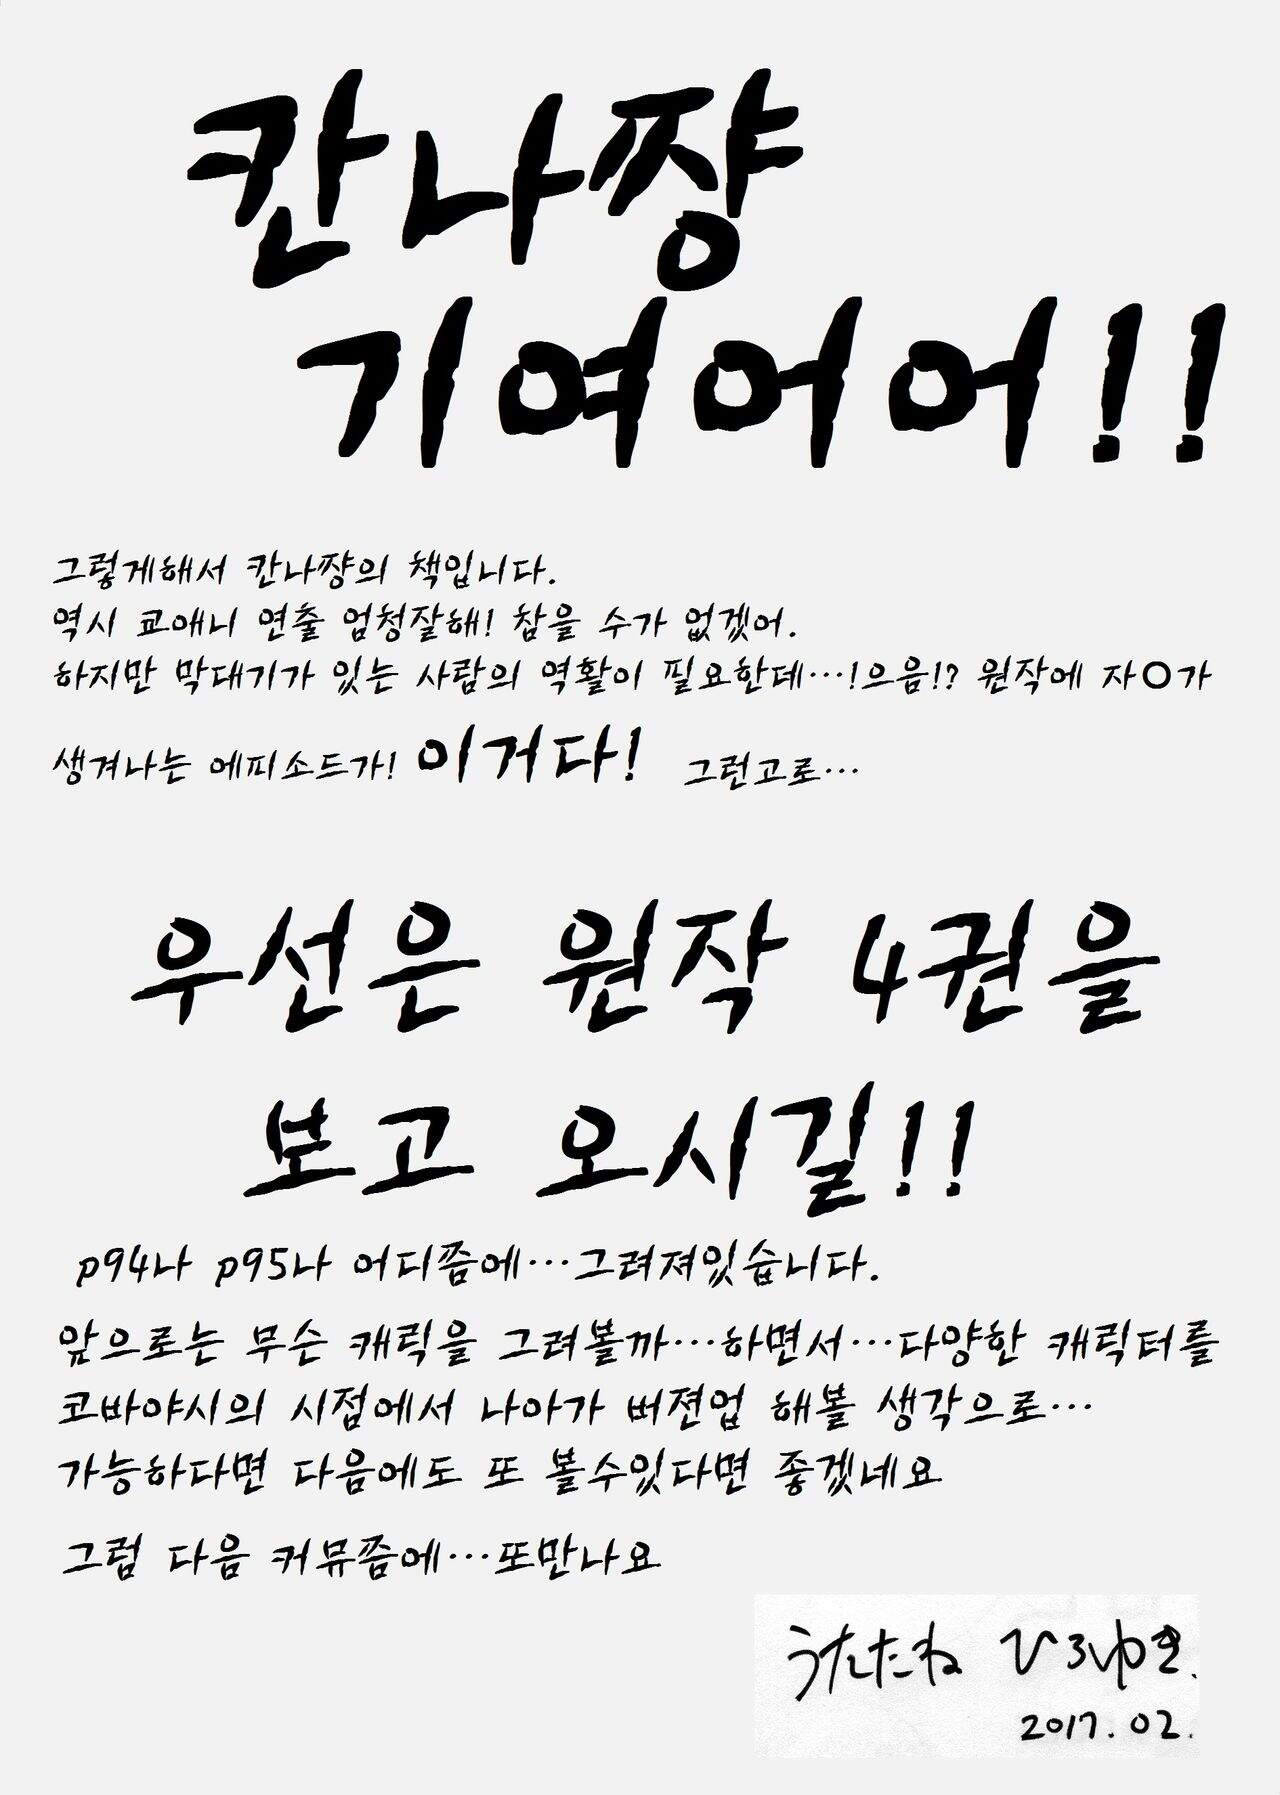 칸나쨩
기여어어!!
그렇게해서 칸나쨩의 책입니다.
역시 쿄애니 연출 엄청잘해! 참을 수가 없겠어.
하지만 막대기가 있는 사람의 역활이 필요한데…!으음!? 원작에 자○가
생겨나는 에피소드가! 이거다! 그런고로…
우선은 원작 4권을
보고 오시길!!
p94나 p95나 어디쯤에…그려져있습니다.
앞으로는 무슨 캐릭을 그려볼까…하면서…다양한 캐릭터를
코바야시의 시점에서 나아가 버젼업 해볼 생각으로…
가능하다면 다음에도 또 볼수있다면 좋겠네요
그럼 다음 커뮤쯤에…또만나요
うたたね ひろゆき.
2017.02.